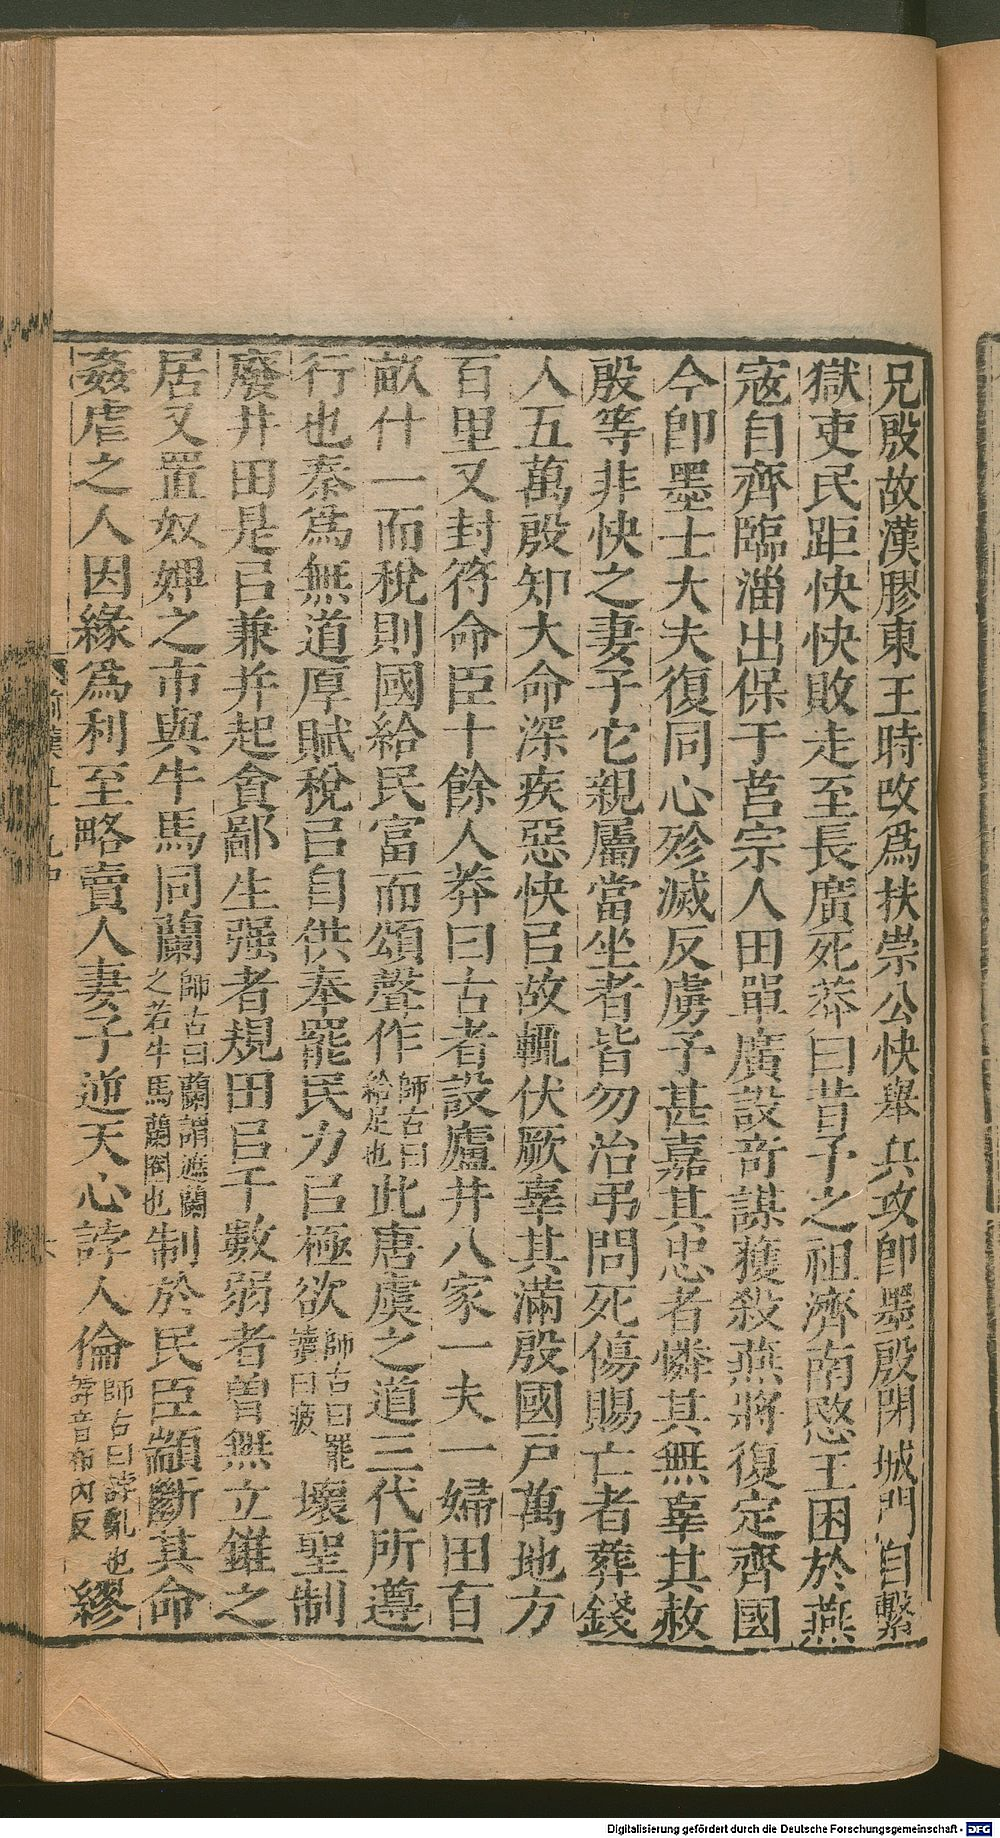 兄殷故漢膠東王時改爲扶崇公快舉兵攻卽墨殷閉城門自繫
獄吏民距快快敗走至長廣死莽曰昔予之祖濟南愍王困於燕
寇自齊臨淄出保于莒宗人田單廣設奇謀獲殺燕將復定齊國
今卽墨士大夫復同心殄滅反虜予甚嘉其忠者憐其無辜其赦
殷等非快之妻子它親屬當坐者皆勿治弔問死傷賜亡者葬錢
人五萬殷知大命深疾惡快㠯故輒伏厥辜其滿殷國戶萬地方
百里又封符命臣十餘人莽曰古者設廬井八家一夫一婦田百
畝什一而稅則國給民富而頌聲作師古曰給足也此唐虞之道三代所遵
行也秦爲無道厚賦稅㠯自供奉罷民力㠯極欲師古曰罷讀曰疲壞聖制
廢井田是㠯兼幷起貪鄙生强者規田㠯千數弱者曾無立錐之
居又置奴婢之市與牛馬同蘭師古曰蘭謂遮蘭之若牛馬蘭圈也制於民臣顓斷其命
姦虐之人因緣爲利至略賣人妻子逆天心誖人倫師古曰誖亂也誖音布內反繆
Digitalisierung gefördert durch die Deutsche Forschungsgemeinschaft - DFG